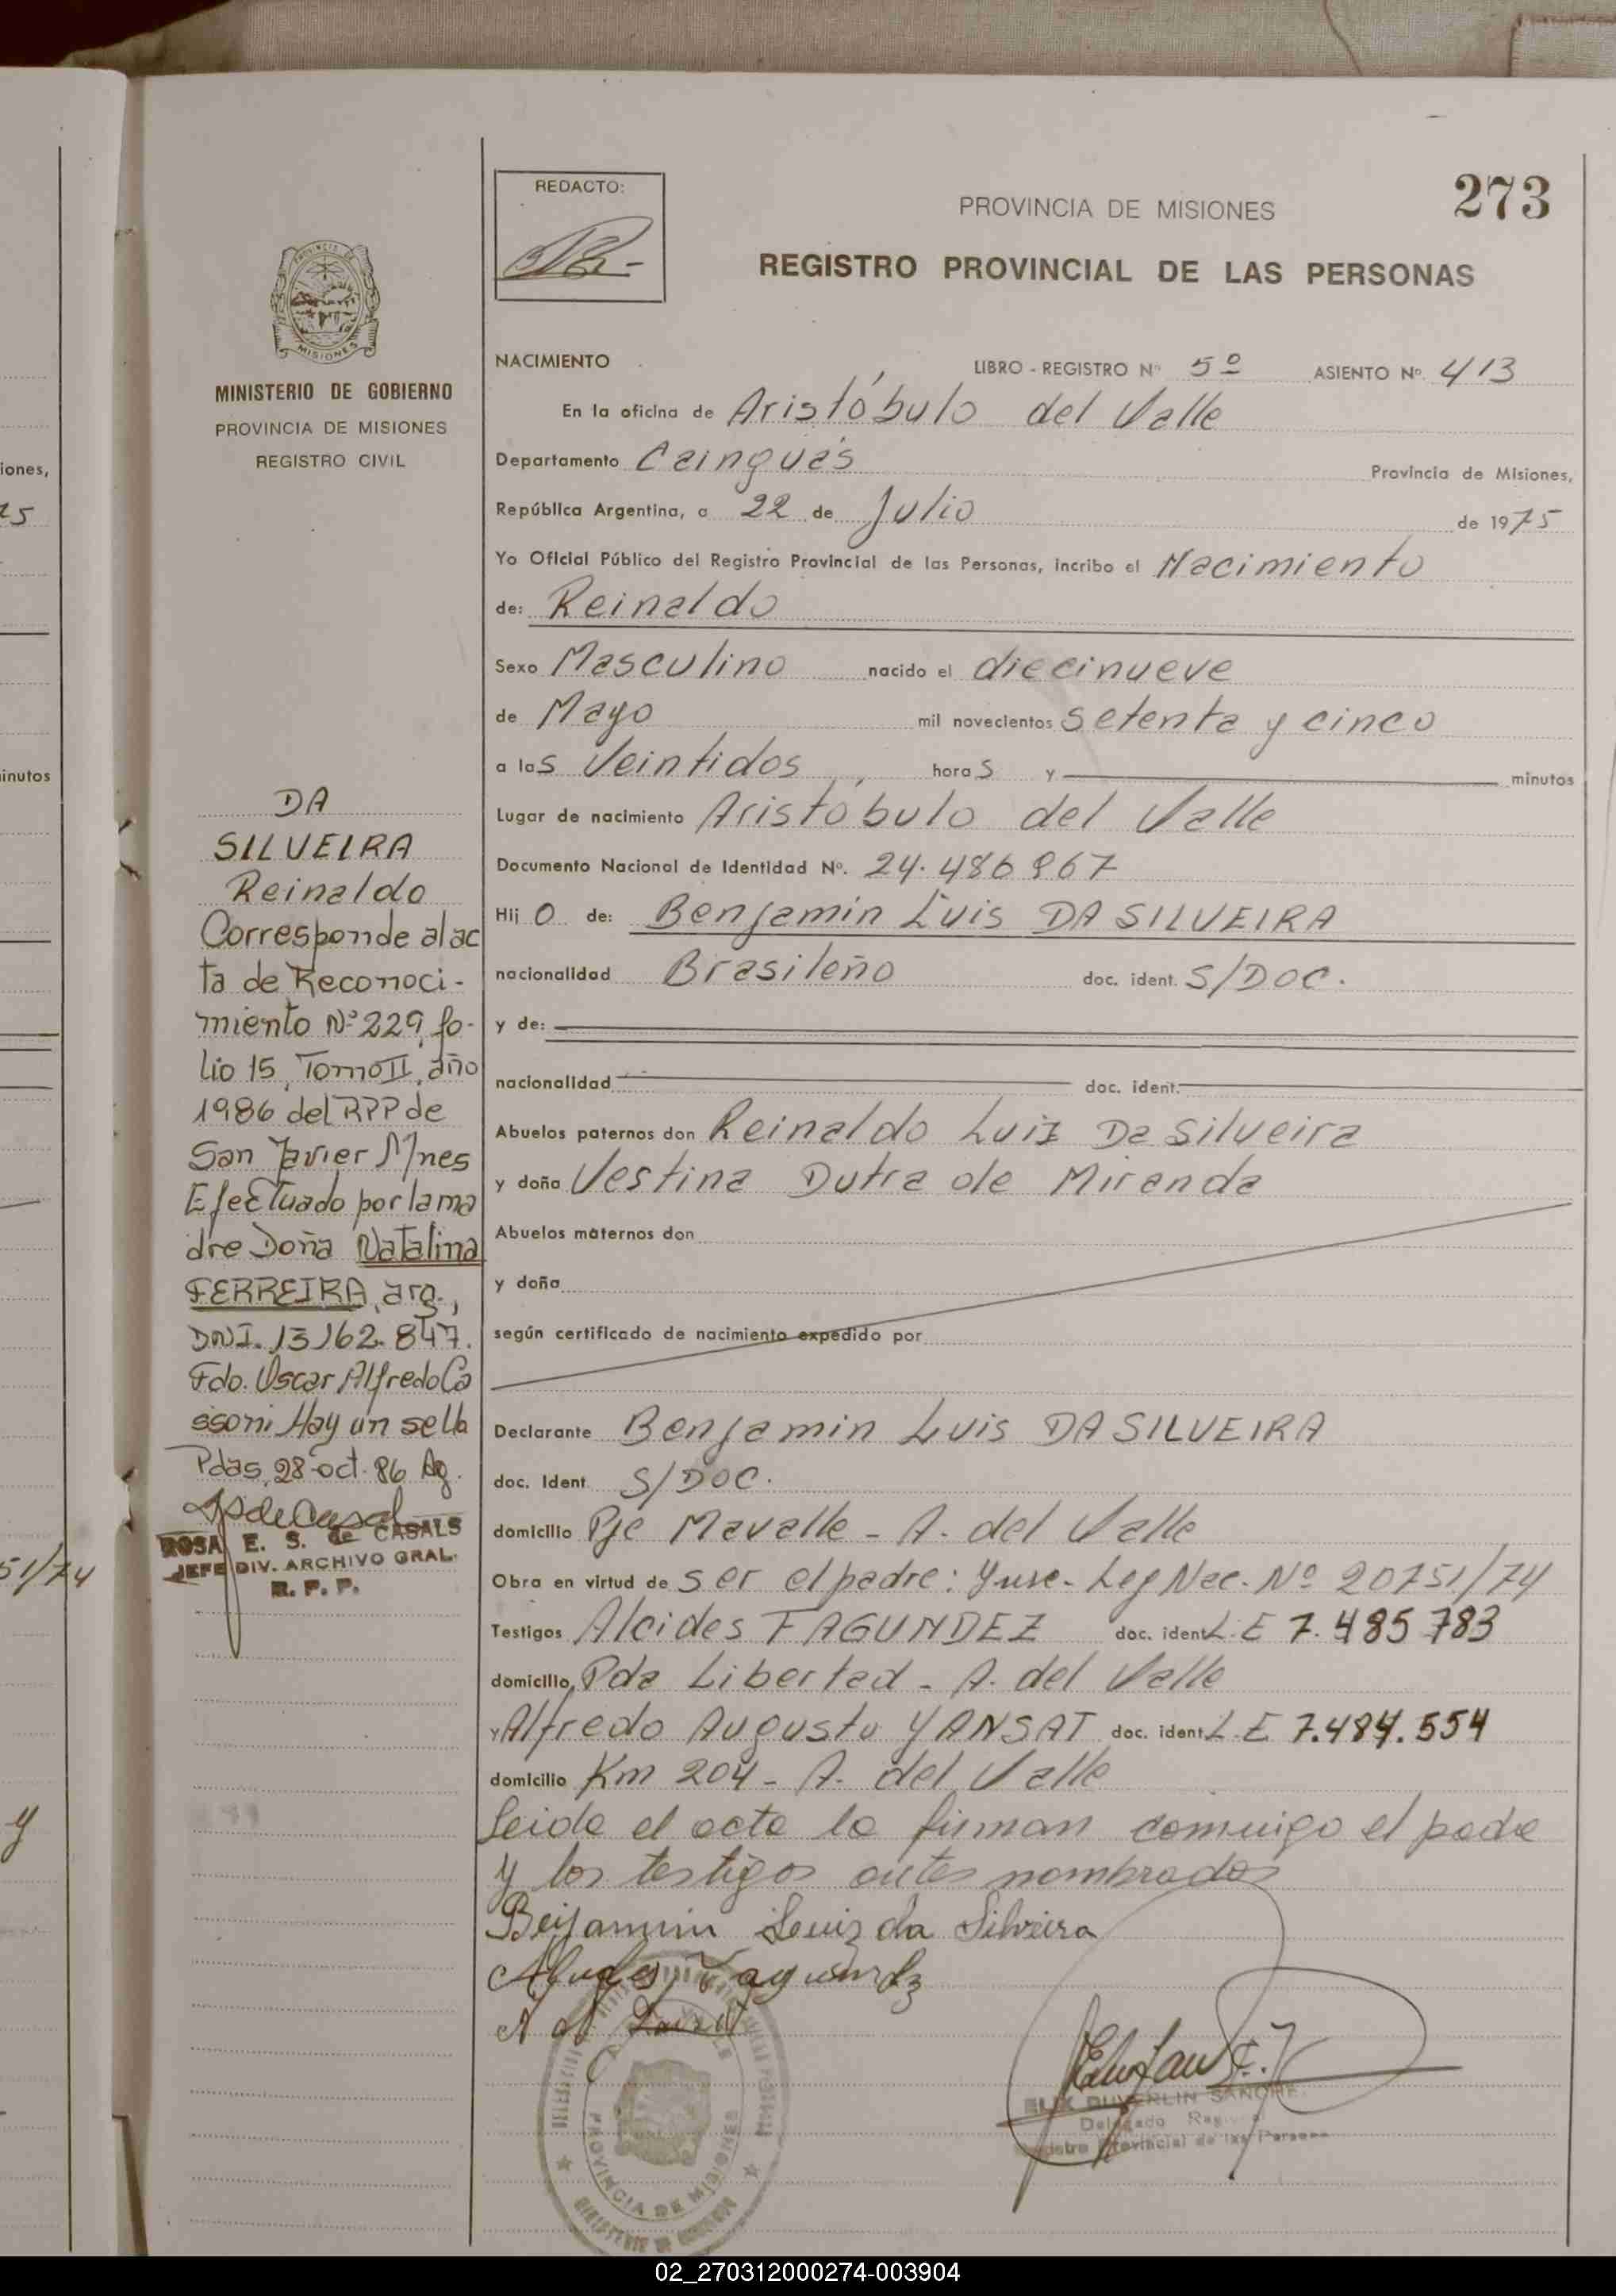 273
REDACTO:
PROVINCIA DE MISIONES
REGISTRO PROVINCIAL DE LAS PERSONAS
MISIONES
MINISTERIO DE GOBIERNO
PROVINCIA DE MISIONES
REGISTRO CIVIL
NACIMIENTO LIBRO - REGISTRO Nº 5º ASIENTO Nº 413
En la oficina de Aristóbulo del Valle
Departamento Cainguás Provincia de Misiones,
República Argentina, a 22 de Julio de 1975
Yo Oficial Público del Registro Provincial de las Personas, incribo el Nacimiento
de: Reinaldo
Sexo Masculino nacido el diecinueve
de Mayo mil novecientos setenta y cinco
a las Veintidos horas y minutos
Lugar de nacimiento Aristóbulo del Valle
Documento Nacional de Identidad Nº. 24.486967
Hijo de: Benjamin Luis DA SILVEIRA
nacionalidad Brasileño doc. ident. S/DOC.
y de:
nacionalidad doc. ident.
Abuelos paternos don Reinaldo Luiz Da Silveira
y doña Vestina Dutra de Miranda
Abuelos maternos don
y doña
según certificado de nacimiento expedido por
Declarante Benjamin Luis DA SILVEIRA
doc. Ident. S/DOC.
domicilio Pje Mavalle - A. del Valle
Obra en virtud de ser el padre: Ley Nac. Nº 20751/74
Testigos Alcides FAGUNDEZ doc. ident L.E 7.485783
domicilio Pda Libertad - A. del Valle
y Alfredo Augusto YANSAT doc. ident L.E 7.484.554
domicilio Km 204 - A. del Valle
Leida el acta la firman conmigo el padre
y los testigos antes nombrados
Benjamin Luiz da Silveira
DA
SILVEIRA
Reinaldo
Corresponde al ac
ta de Reconoci-
miento Nº 229, fo-
lio 15, Tomo II, año
1986 del RPP de
San Javier Mnes
Efectuado por la ma
dre Doña Natalina
FERREIRA, arg.,
DNI. 13162.847.
Fdo. Oscar Alfredo Ca
ssoni Hay un sello
Pdas, 28-oct. 86
ROSA E. S. de CASALS
JEFE DIV. ARCHIVO GRAL.
R. P. P.
PROVINCIA DE MISIONES
iones,
75
inutos
51/74
y
02_270312000274-003904